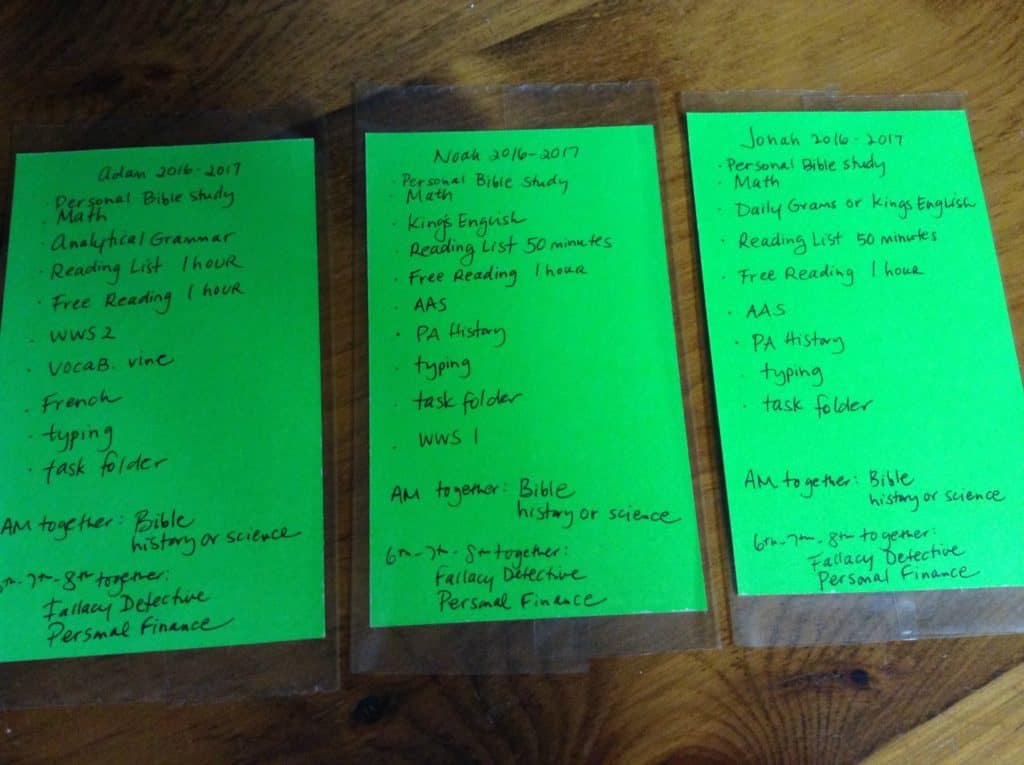 Adam 2016-2017
· Personal Bible Study
· Math
· Analytical Grammar
· Reading List 1 hour
· Free Reading 1 hour
· WWS 2
· Vocab. vine
· French
· typing
· task folder
AM together: Bible
history or science
6th-7th-8th together:
Fallacy Detective
Personal Finance
Noah 2016-2017
· Personal Bible Study
· Math
· King's English
· Reading List 50 minutes
· Free Reading 1 hour
· AAS
· PA History
· typing
· task folder
· WWS 1
AM together: Bible
history or science
6th-7th-8th together:
Fallacy Detective
Personal Finance
Jonah 2016-2017
· Personal Bible study
· Math
· Daily Grams or King's English
· Reading List 50 minutes
· Free Reading 1 hour
· AAS
· PA History
· typing
· task folder
AM together: Bible
history or science
6th-7th-8th together:
Fallacy Detective
Personal Finance